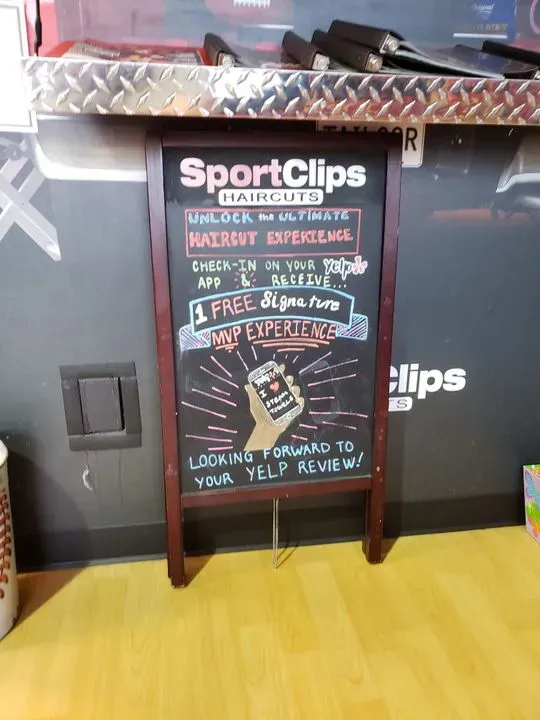 TAILOR
SportClips
HAIRCUTS
UNLOCK the ULTIMATE
HAIRCUT EXPERIENCE
CHECK-IN ON YOUR yelp
APP & RECEIVE...
1 FREE Signature
MVP EXPERIENCE
I
STEAM
TOWELS
LOOKING FORWARD TO
YOUR YELP REVIEW!
Clips
S